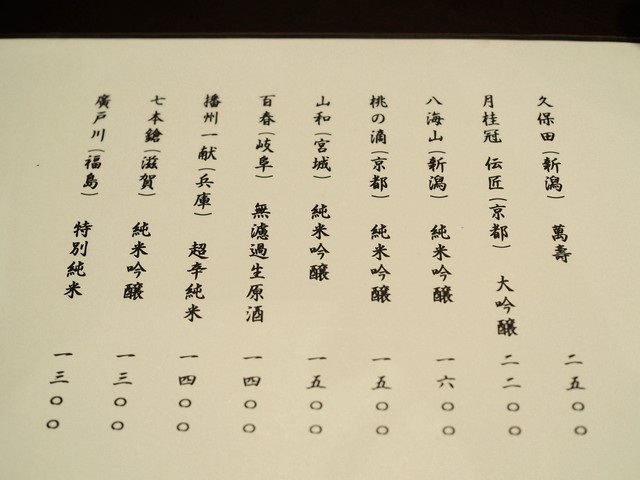 久保田（新潟） 萬壽 二五〇〇
月桂冠 伝匠（京都） 大吟醸 二二〇〇
八海山（新潟） 純米吟醸 一六〇〇
桃の滴（京都） 純米吟醸 一五〇〇
山和（宮城） 純米吟醸 一五〇〇
百春（岐阜） 無濾過生原酒 一四〇〇
播州一献（兵庫） 超辛純米 一四〇〇
七本鎗（滋賀） 純米吟醸 一三〇〇
廣戸川（福島） 特別純米 一三〇〇